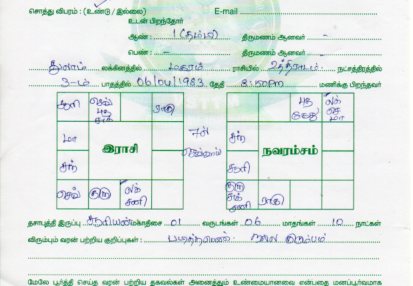 சொத்து விபரம் : (உண்டு / இல்லை) E-mail
உடன் பிறந்தோர்
ஆண் : 1 (தம்பி) திருமணம் ஆனவர் -
பெண் : - திருமணம் ஆனவர் -
துலாம் லக்கினத்தில் மகரம் ராசியில் உத்திராடம் நட்சத்திரத்தில்
3-ம் பாதத்தில் 06/04/1983 தேதி 8:50pm மணிக்கு பிறந்தவர்
சூரி செவ் புத சுக் ராகு
மா
சந்
செவ் குரு லக் சனி
இராசி
நவரம்சம்
புத கேது லக் செ மா
சந்
சூரி
குரு சுக் சனி ராகு
தசாபுத்தி இருப்பு : சூரியன் மகாதிசை 01 வருடங்கள் 06 மாதங்கள் 10 நாட்கள்
விரும்பும் வரன் பற்றிய குறிப்புகள் : நல்ல குடும்பம்
மேலே பூர்த்தி செய்த வரன் பற்றிய தகவல்கள் அனைத்தும் உண்மையானவை என்பதை மனப்பூர்வமாக